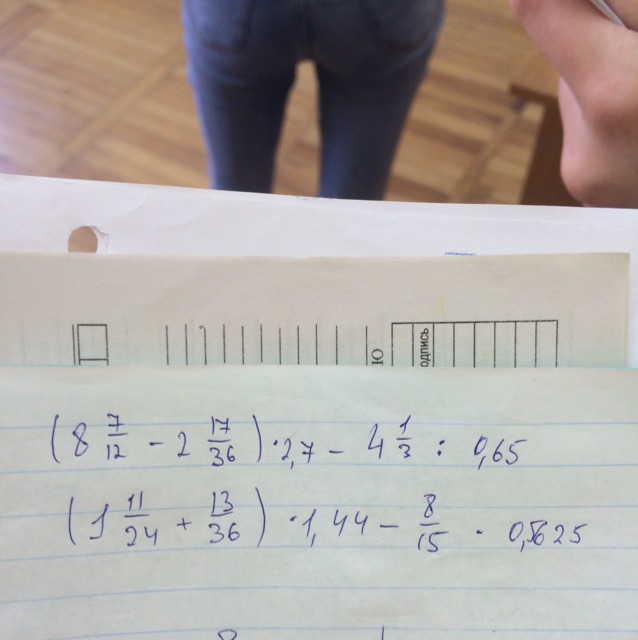 Ю
одпись
(8 7/12 - 2 17/36) · 2,7 - 4 1/3 : 0,65
(1 11/24 + 13/36) · 1,44 - 8/15 · 0,5625